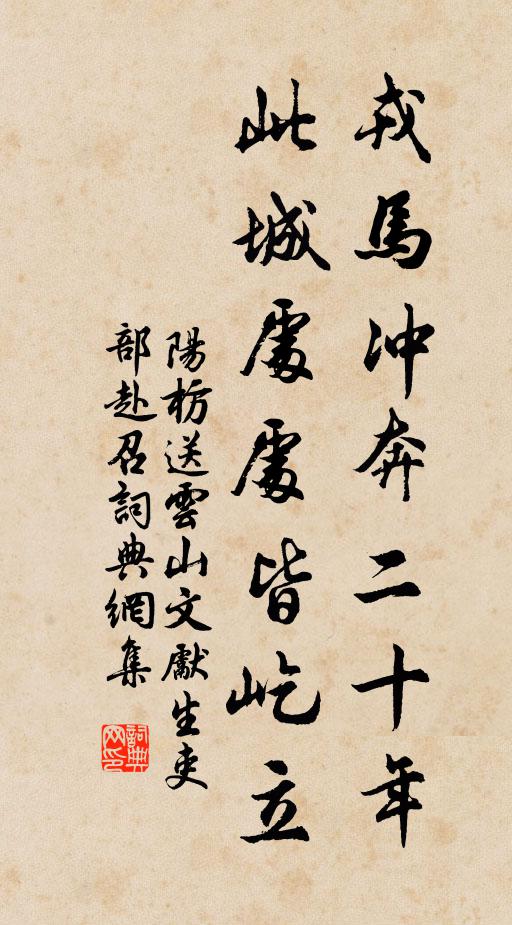 戎馬冲奔二十年
此城處處皆屹立
陽枋送雲山文獻生吏
部赴召詞典網集
詞典网印